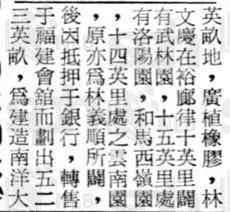 英畝地，廣植橡膠，林
文慶在裕廊律十英里處
有武林園，十五英里處
有洛陽園，和馬西嶺園
，十四英里處之雲南園
，原亦爲林義順所闢，
後因抵押于銀行，轉售
于福建會舘而劃出五二
三英畝，爲建造南洋大